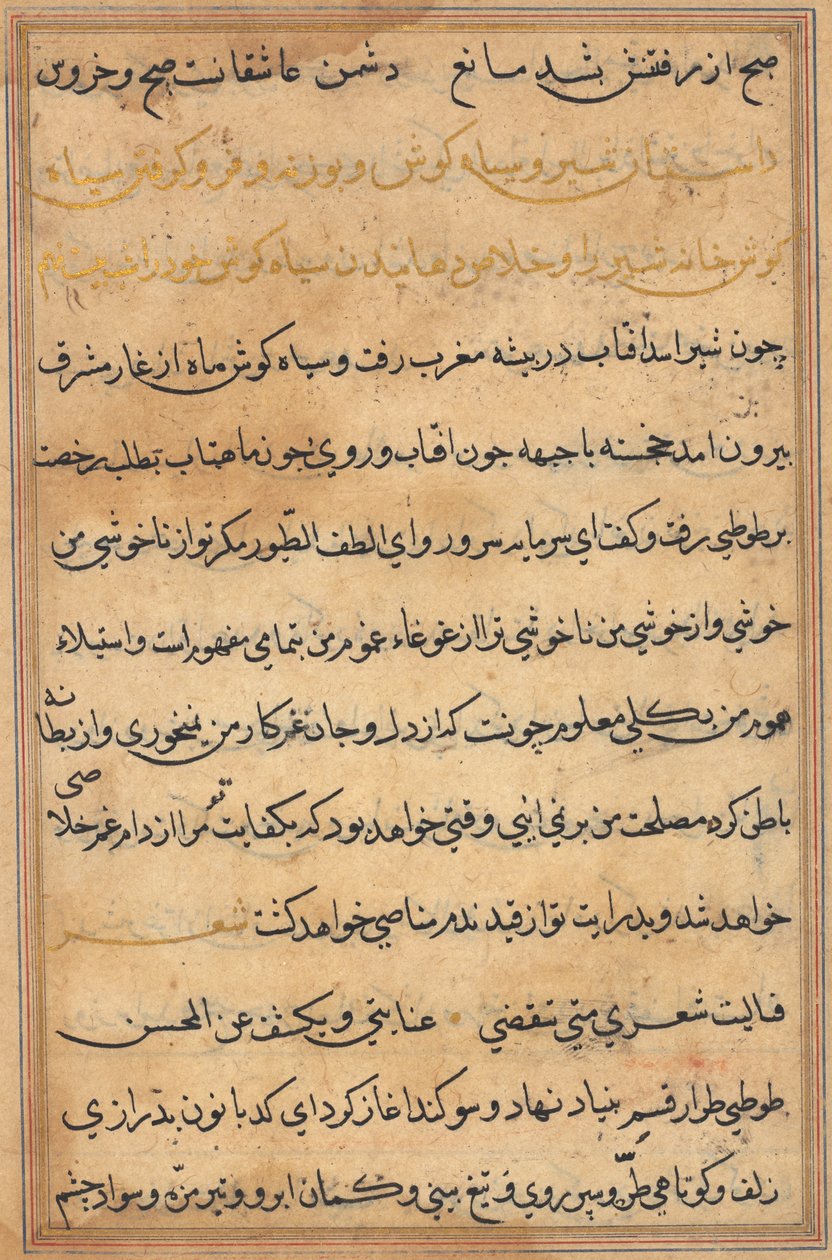 صبح از رفتنش بشد مانع دشمن عاشقانست صبح و خروس
داستان شیر و سیاه کوش و بوزنه و فرو کرفتن سیاه
کوش خانه شیر را و خلاص دهانیدن سیاه کوش خود را شب بیست نهم
چون شیر اسد افتاب در بیشه مغرب رفت و سیاه کوش ماه از غار مشرق
بیرون امد خجسته با جبهه جون افتاب و روی جون ماهتاب بطلب رخصت
بر طوطی رفت و کفت ای سرمایه سرور و ای الطف الطّیور مکر تو از ناخوشی من
خوشی و از خوشی من ناخوشی ترا از غوغاء غموم من بتمامی مفهوم است و استیلاء
هموم من بکلی معلوم چونست که از دل و جان غم کار من نمیخوری و از بطانه
باطن کرد مصلحت من بر نمی ایی وقتی خواهد بود که بکفایت تو مرا از دام غم خلاصی
خواهد شد و بدرایت تو از قید ندم مناصی خواهد کشت شعر
فالیت شعری متی تنقضی عنایتی و یکشف عن المحسن
طوطی طرار قسم بنیاد نهاد و سوکند اغاز کرد ای کدبانون بدرازی
زلف و کوتاهی طرّه و سپر روی و تیغ بینی و کمان ابرو و تیر مژّه و سواد چشم